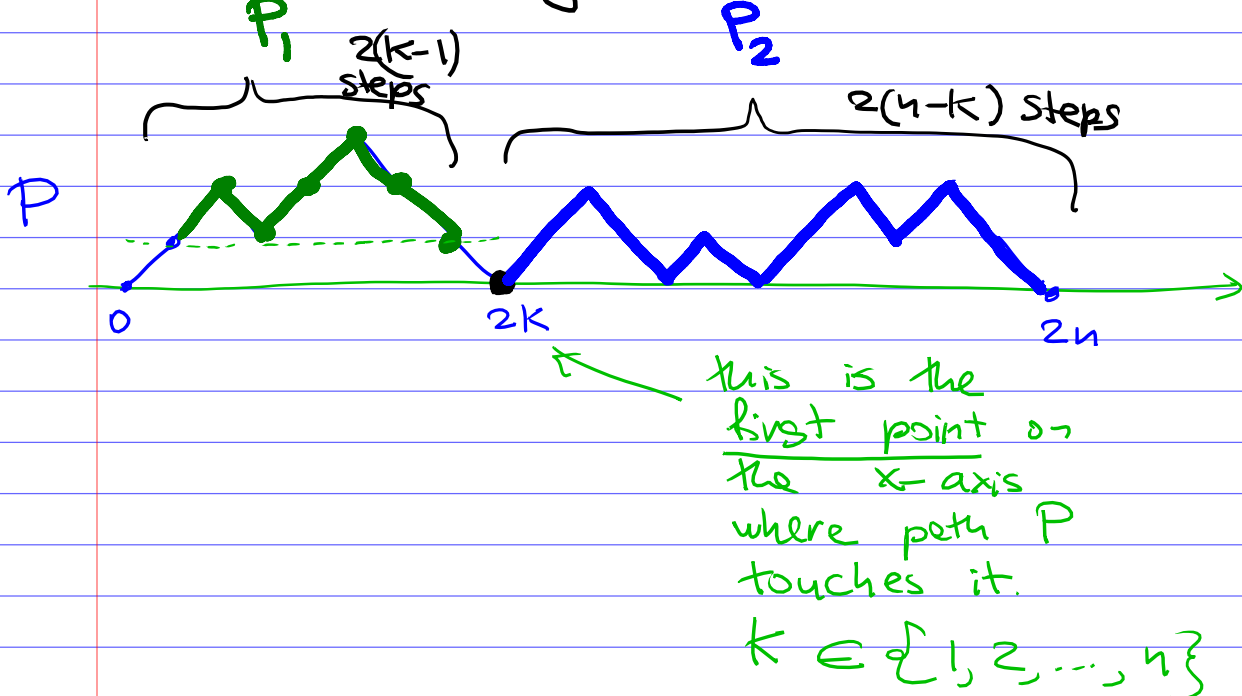 P₁
P₂
2(k-1)
steps
2(n-k) steps
P
0
2k
2n
this is the
first point on
the x-axis
where path P
touches it.
k ∈ {1, 2, ..., n}